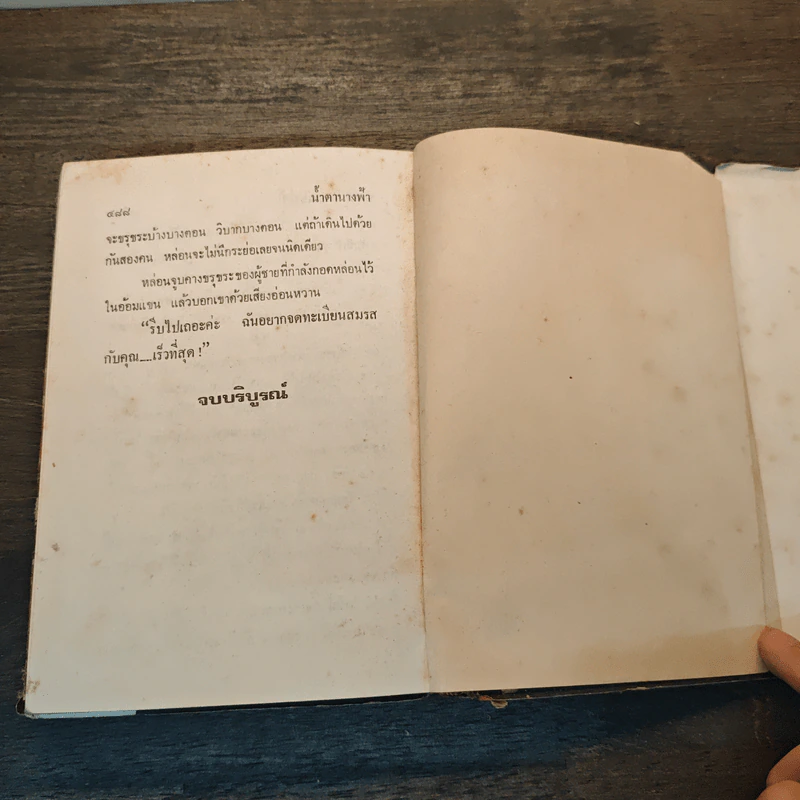 ๔๘๘
น้ำตานางฟ้า
จะขรุขระบ้างบางตอน วิบากบางตอน แต่ถ้าเดินไปด้วย
กันสองคน หล่อนจะไม่นึกระย่อเลยจนนิดเดียว
หล่อนจูบคางขรุขระของผู้ชายที่กำลังกอดหล่อนไว้
ในอ้อมแขน แล้วบอกเขาด้วยเสียงอ่อนหวาน
“รีบไปเถอะค่ะ ฉันอยากจดทะเบียนสมรส
กับคุณ.....เร็วที่สุด !”
จบบริบูรณ์